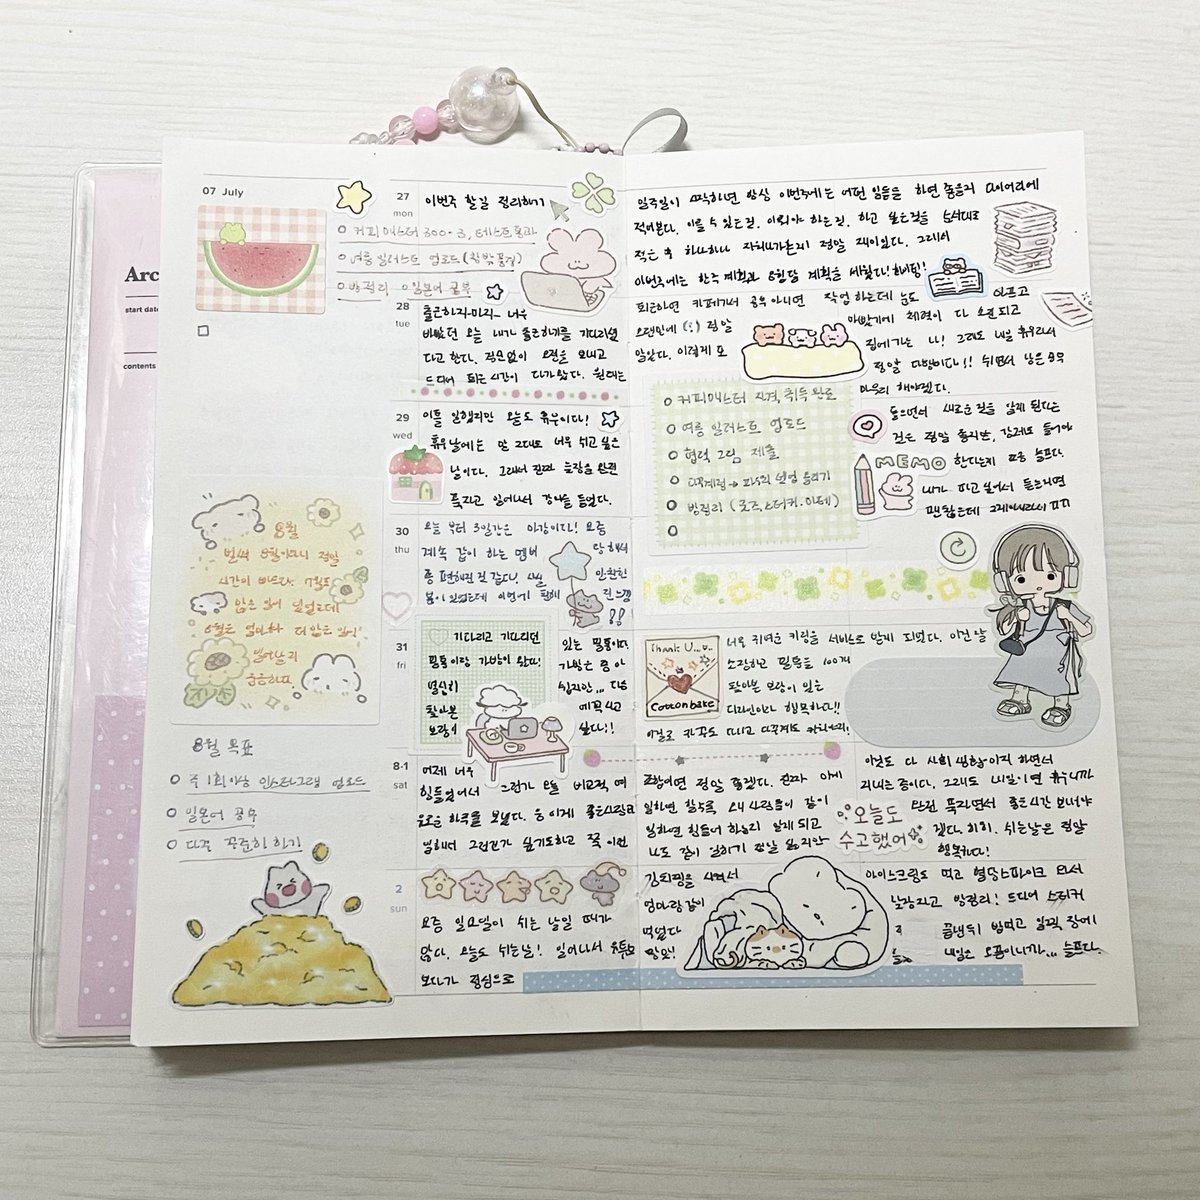 Arc
start date
contents
07 July
27
mon
이번주 할일 정리하기
커피마스터 300-3, 테스트 통과
여름 일러스트 업로드 (창밖풍경)
방정리 일본어 공부
일주일이 시작하면 항상 이번주에는 어떤 일들을 하면 좋을지 다이어리에
적어본다. 이룰 수 있는것, 이뤄야 하는것, 하고 싶은것을 순서대로
적은 후 하나하나 지워나가는게 정말 재미있다. 그래서
이번주에는 한주 계획과 8월달 계획을 세웠다! 화이팅!
28
tue
출근하자마자 너무
바빴던 오늘 내가 출근하기를 기다리셨
다고 한다. 정신없이 오전을 보내고
드디어 퇴근 시간이 다가왔다. 원래는
퇴근하면 카페가서 공부 아니면 작업 하는데 눈도
아프고
오랜만에 (:) 정말
많았다. 이렇게 또
체력이 다 오링되고
집에가는 나! 그래도 내일 휴무라서
정말 다행이다!! 쉬면서 남은 업무
마무리 해야겠다.
29
wed
이틀 일했지만 오늘도 휴무이다!
휴무날에는 말 그대로 너무 쉬고 싶은
날이다. 그래서 진짜 늦잠을 완전
푹자고 일어나서 강의를 들었다.
커피마스터 자격 취득 완료
여름 일러스트 업로드
협력 그림 제출
방정리 (굿즈, 스티커, 마테)
들으면서 새로운 것을 알게 된다는
것은 정말 좋지만, 강제로 들어야
한다는게 조금 슬프다.
MEMO
내가 하고 싶어서 들은거면
괜찮은데
30
thu
오늘 부터 3일간은 마감이다! 요즘
계속 같이 하는 멤버
좀 편해진 것 같다. 사실
31
fri
기다리고 기다리던
필통이랑 가방이 왔다!
열심히
찾아본
보람이
있는 필통이다.
가방은 좀 아
쉽지만... 다음
에 꾹 사고
싶다!!
Thank U...
Cottonbake
너무 귀여운 키링을 서비스로 받게 되었다. 이건 날
소장하고 필통을 100개
찾아본 보람이 있는
디자인이라 행복하다!!
8월
벌써 8월이라니 정말
시간이 빠르다. 7월도
많은 일이 있었는데
8월은 얼마나 더 많은 일이
일어날지
궁금하다.
8월 목표
주 1회이상 인스타그램 업로드
일본어 공부
다꾸 꾸준히 하기
8·1
sat
어제 너무
힘들었어서 그런가 오늘 비교적 여
유로운 하루를 보냈다. 좋은사람과
일해서 그런건가 싶기도하고 쭉 이런
조합이면 정말 좋겠다. 진짜 이게
일하면 할수록 사람들이 같이
일하면 힘들어 하는지 알게 되고
나도 같이 일하기 정말 싫지만
아직도 다 사회 생활이지 하면서
지나는 중이다. 그래도 내일이면 휴무니까
완전 푹자면서 좋은시간 보내야
겠다. 히히. 쉬는날은 정말
행복하다!
오늘도
수고했어
2
sun
요즘 일요일이 쉬는 날일 때가
많다. 오늘도 쉬는날! 일어나서 유튜브
보다가 점심으로
김치찜을 시켜서
엄마랑같이
먹었다
아이스크림도 먹고 와서
낮잠자고 방정리! 드디어 스티커
끝낸뒤 밥먹고 일찍 잠에
내일은 오픈이니까... 슬프다.